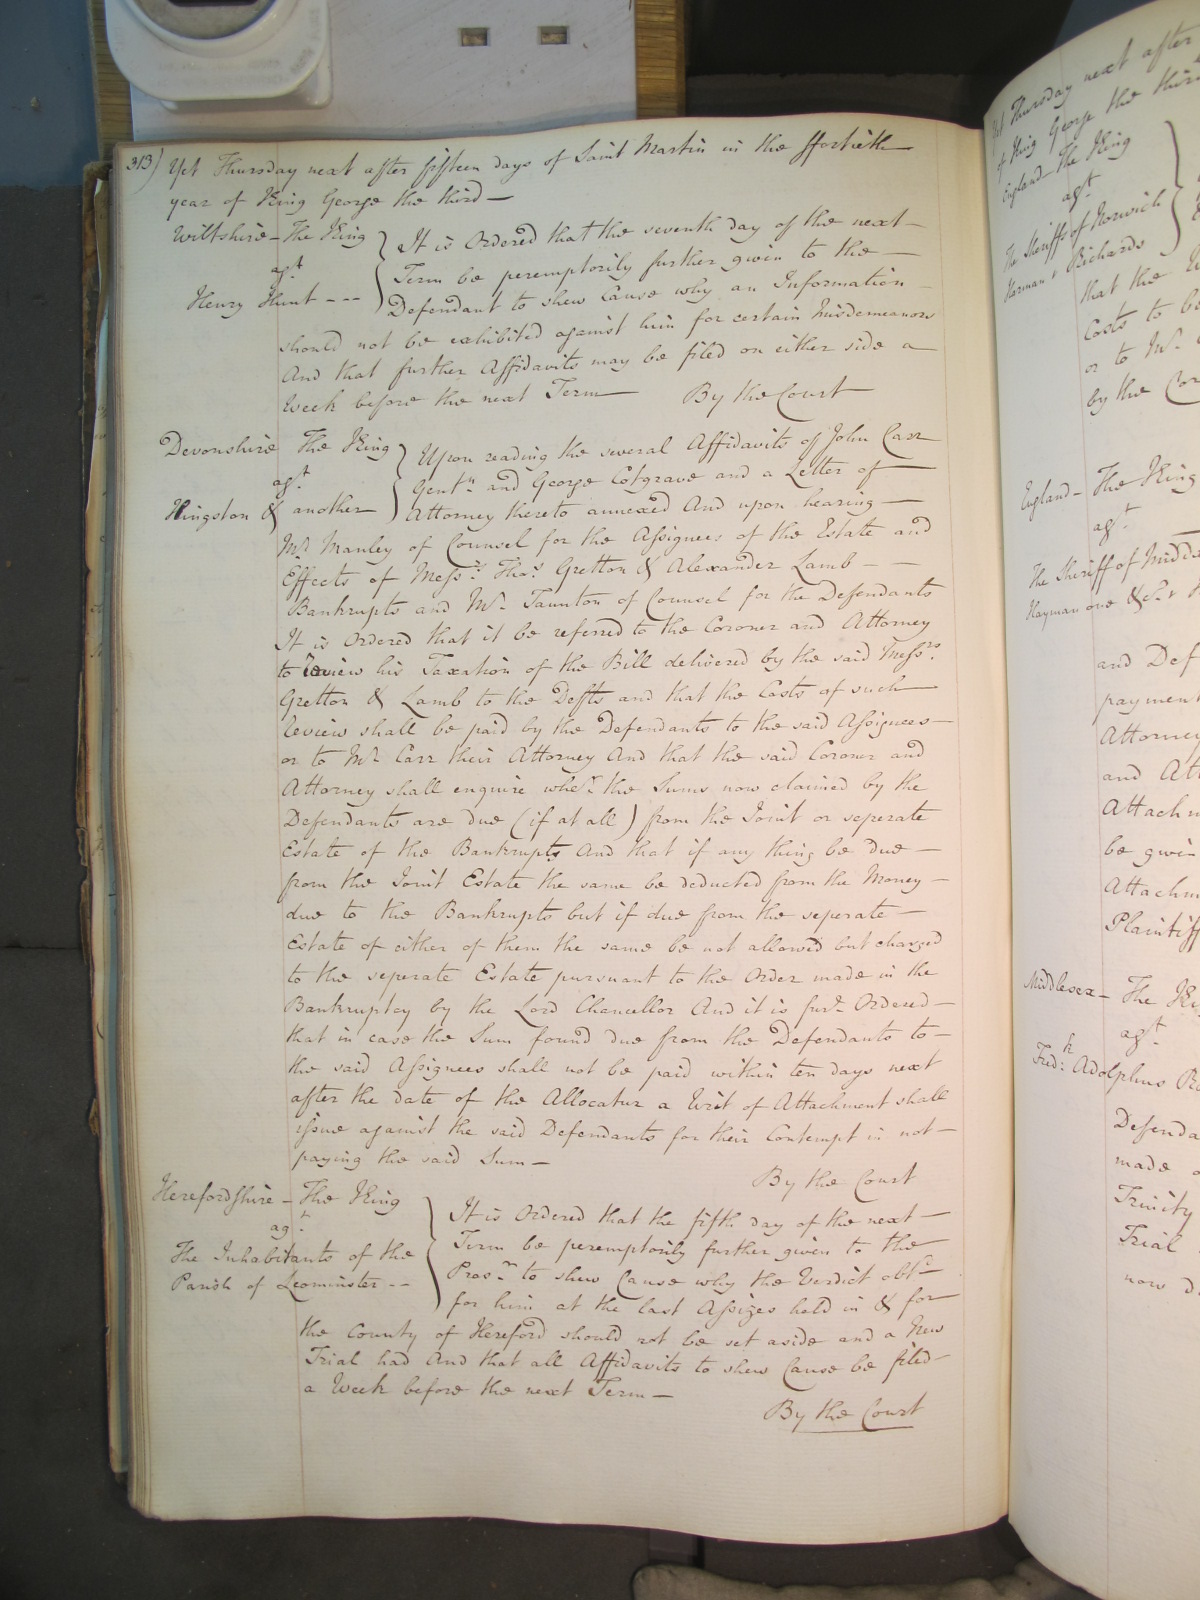 313) Yet Thursday next after fifteen days of Saint Martin in the ffortieth
year of King George the third —
Wiltshire — The King
agt
Henry Hunt - - -
It is Ordered that the seventh day of the next —
Term be peremptorily further given to the —
Defendant to shew Cause why an Information
should not be exhibited against him for certain Misdemeanors
And that further Affidavits may be filed on either side a
Week before the next Term — By the Court
Devonshire The King
agt
Kingston & another
Upon reading the several Affidavits of John Carr
Gentn and George Cosgrave and a Letter of
Attorney thereto annexed And upon hearing —
Mr Manley of Counsel for the Assignees of the Estate and
Effects of Messrs Thos Gretton & Alexander Lamb — —
Bankrupts and Mr Taunton of Counsel for the Defendants
It is Ordered that it be referred to the Coroner and Attorney
to review his Taxation of the Bill delivered by the said Messrs
Gretton & Lamb to the Defts and that the Costs of such
review shall be paid by the Defendants to the said Assignees —
or to Mr Carr their Attorney And that the said Coroner and
Attorney shall enquire wher the Sums now claimed by the
Defendants are due (if at all) from the Joint or seperate
Estate of the Bankrupts And that if any thing be due —
from the Joint Estate the same be deducted from the Money —
due to the Bankrupts but if due from the seperate —
Estate of either of them the same be not allowed but charged
to the seperate Estate pursuant to the Order made in the
Bankruptcy by the Lord Chancellor And it is furr Ordered —
that in case the Sum found due from the Defendants to —
the said Assignees shall not be paid within ten days next
after the date of the Allocatur a Writ of Attachment shall
issue against the said Defendants for their Contempt in not —
paying the said Sum —
By the Court
Herefordshire — The King
agt
The Inhabitants of the
Parish of Leominster - -
It is Ordered that the fifth day of the next —
Term be peremptorily further given to the
Prosr to shew Cause why the Verdict obtd
for him at the last Assizes held in & for
the County of Hereford should not be set aside and a New
Trial had And that all Affidavits to shew Cause be filed
a Week before the next Term —
By the Court
Yet Thursday next after
of King George the third
England The King
agt
The Sheriffs of Norwich
Harman v Richards
that the
Costs to be
or to Mr
by the
England — The King
agt
The Sheriff of
Hayman one &c v
and Def
payment
Attorney
and Att
Attachm
be given
Attachm
Plaintiff
Middlesex — The King
agt
Fredk Adolphus
Defenda
made
Trinity
Trial
now